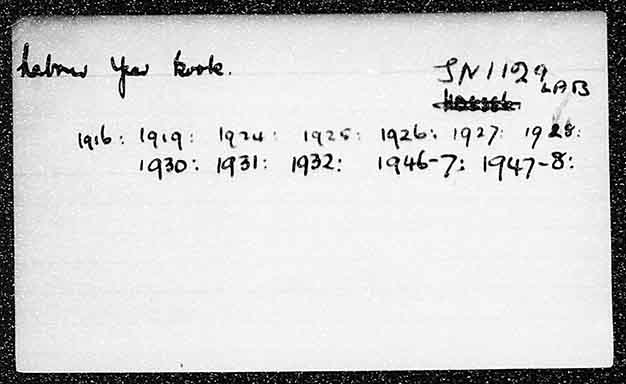 Labour Year Book.
JN1129
LAB
1916: 1919: 1924: 1925: 1926: 1927: 1928:
1930: 1931: 1932: 1946-7: 1947-8: